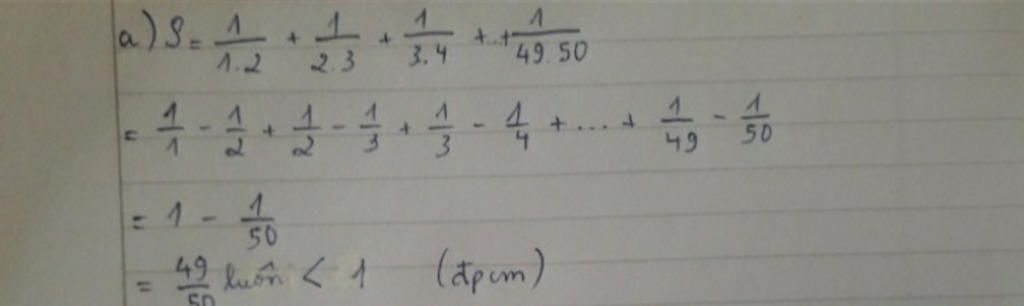 a) S = 1/1.2 + 1/2.3 + 1/3.4 +...+ 1/49.50
= 1/1 - 1/2 + 1/2 - 1/3 + 1/3 - 1/4 + ... + 1/49 - 1/50
= 1 - 1/50
= 49/50 luôn < 1 (đpcm)